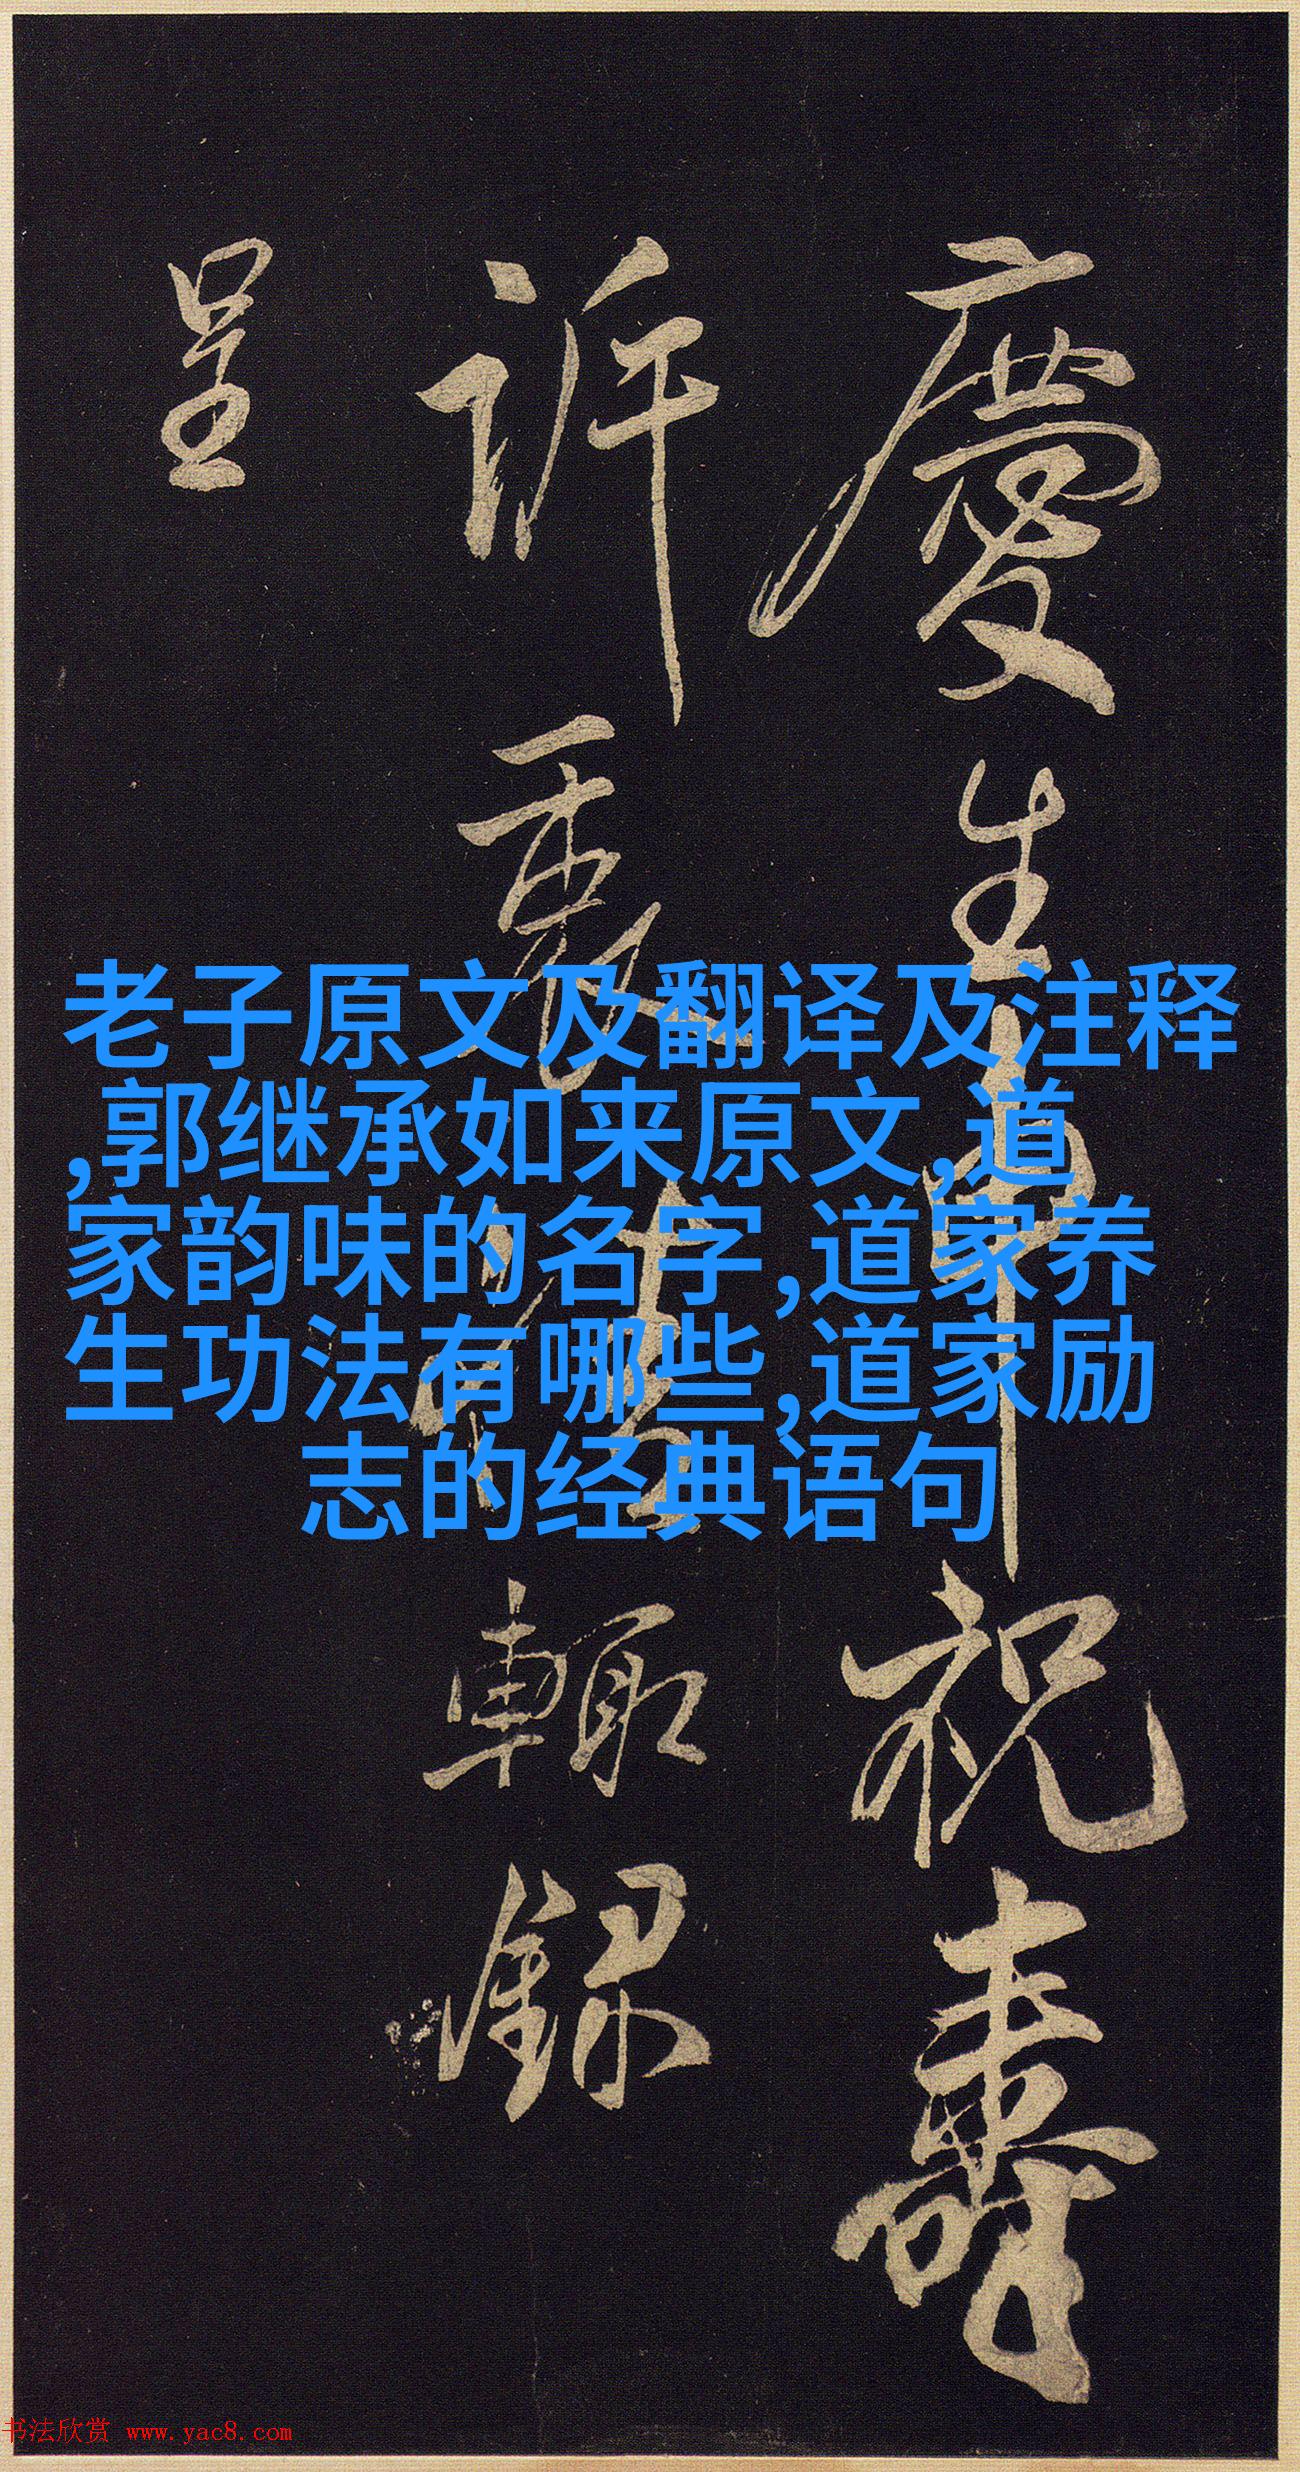 慶生申祝壽
訴衷情輒錄
呈
老子原文及翻译及注释
,郭继承如来原文,道
家韵味的名字,道家养
生功法有哪些,道家励
志的经典语句
书法欣赏 www.yac8.com